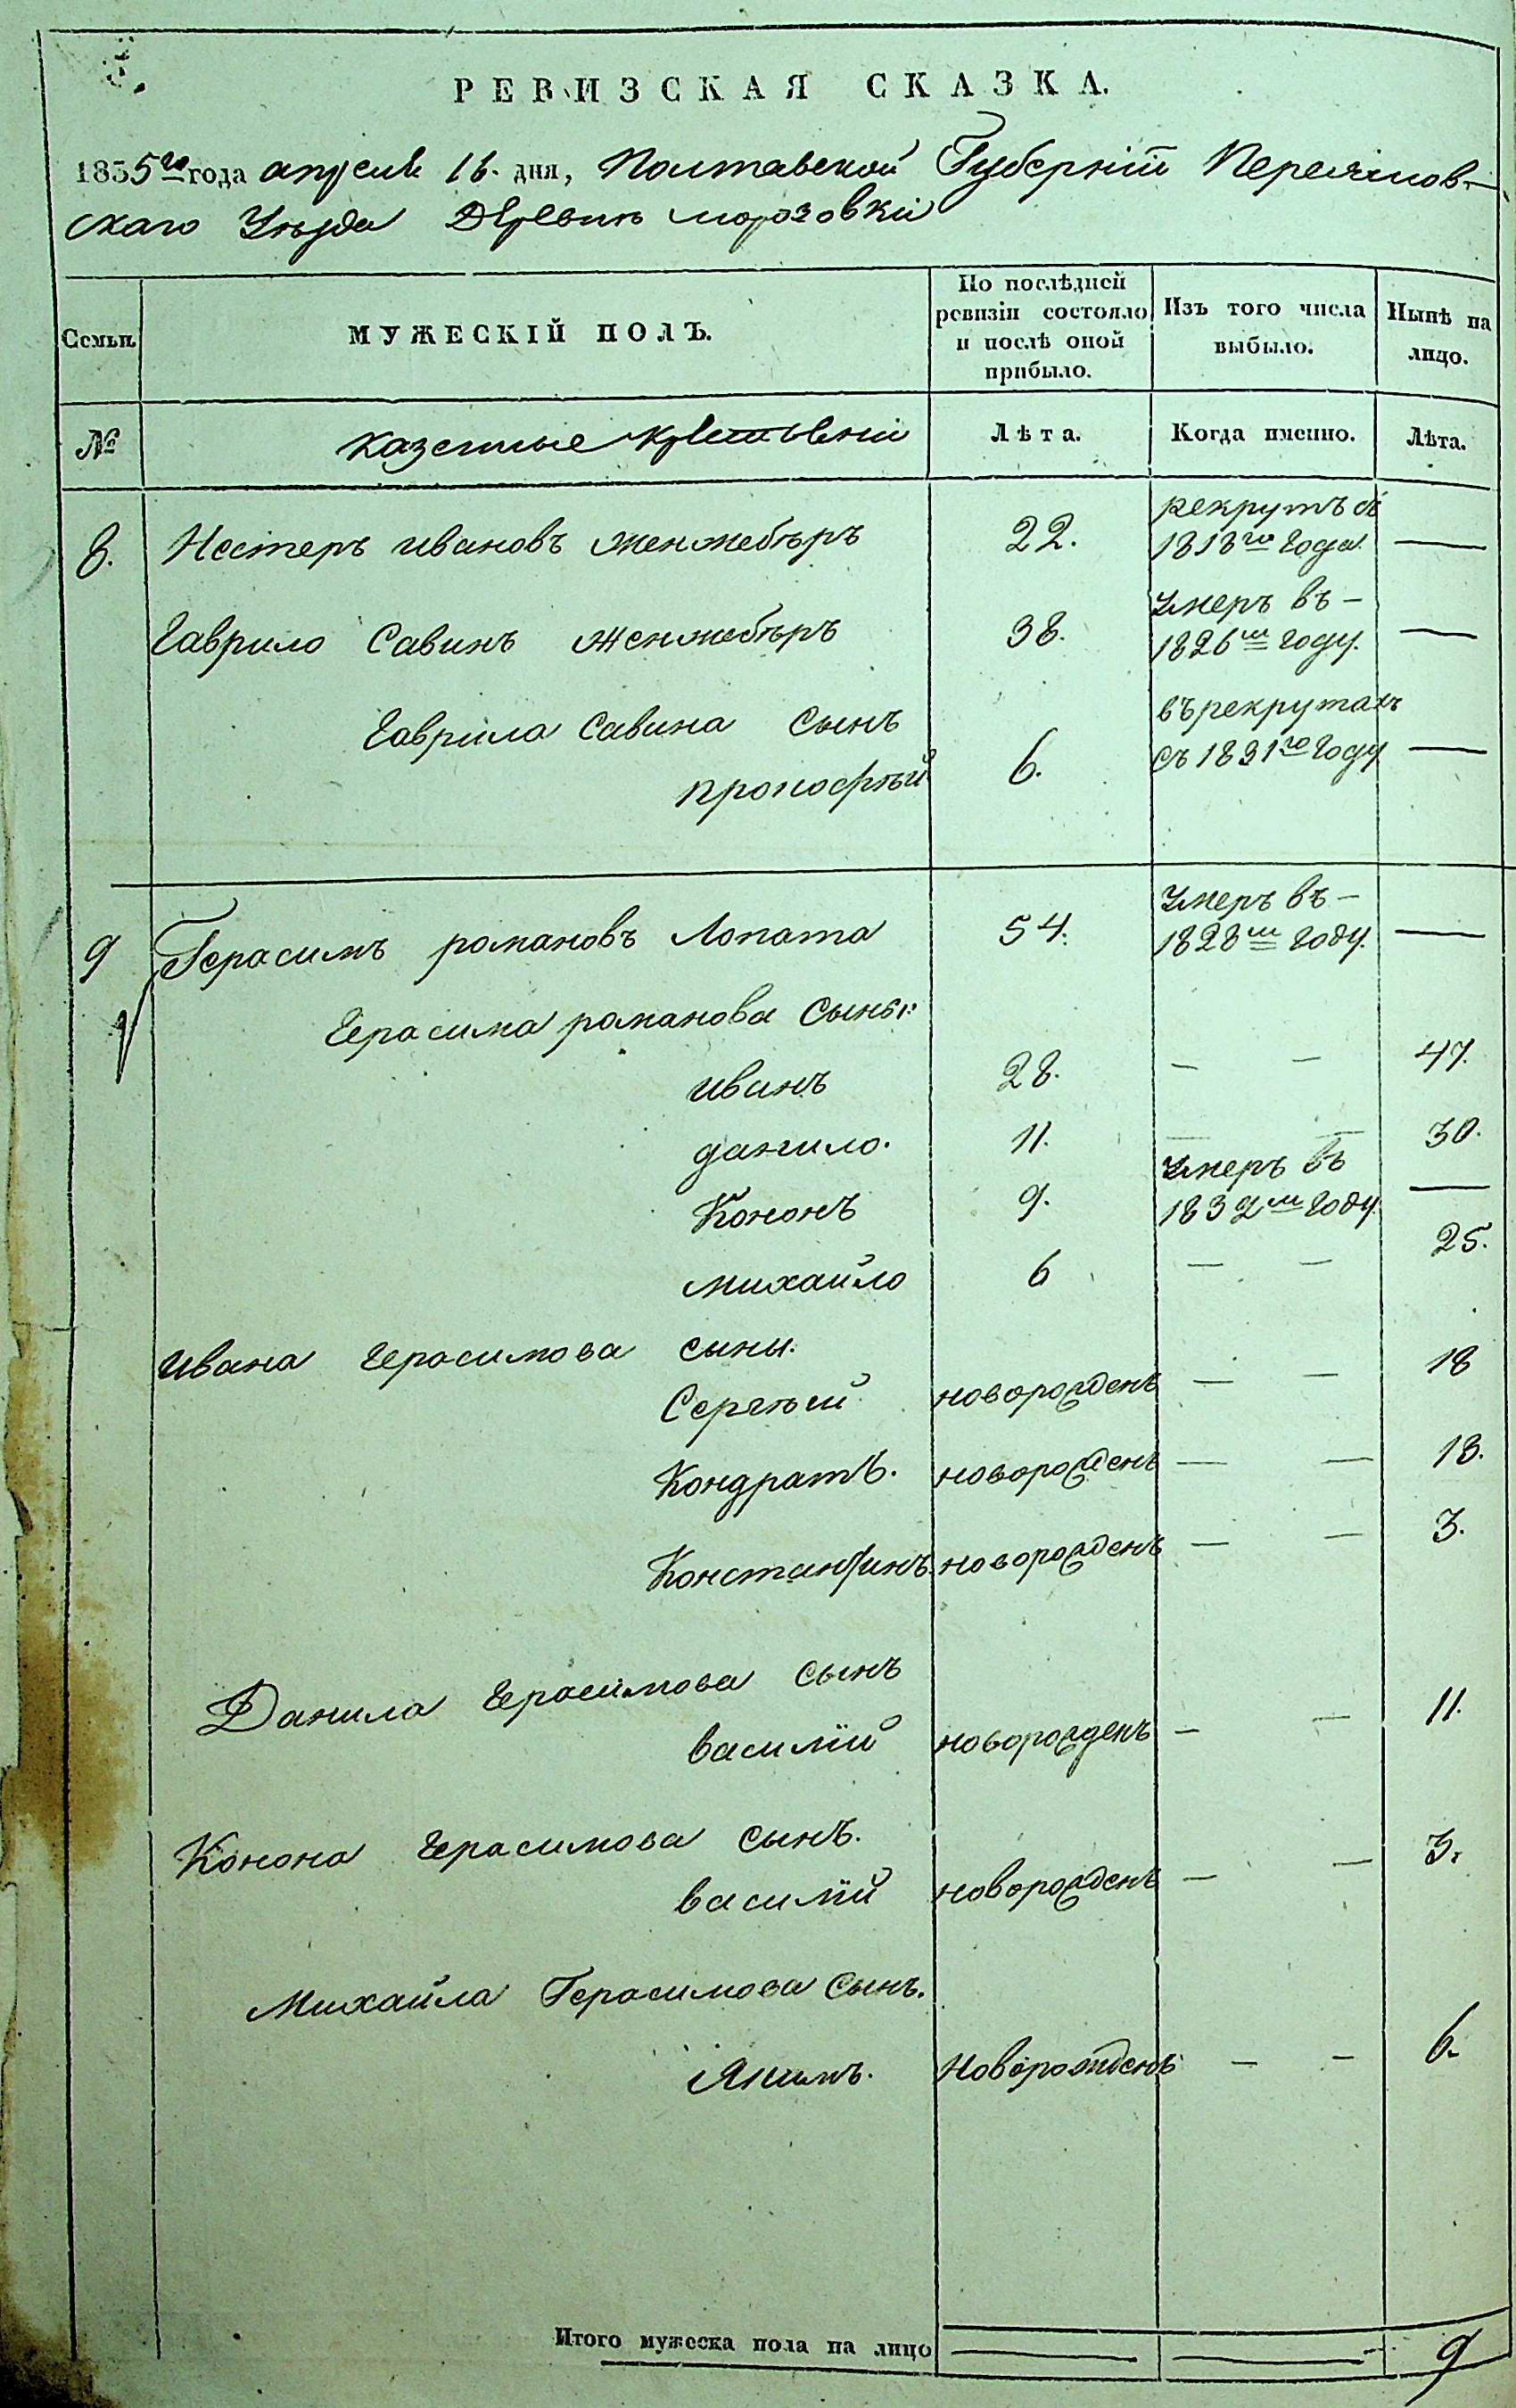 РЕВИЗСКАЯ СКАЗКА.
1835го года апреля 16. дня, Полтавской Губерніи Переяслов-
скаго Уѣзда Деревни морозовки
Семьи
МУЖЕСКІЙ ПОЛЪ.
По послѣдней ревизіи состояло и послѣ оной прибыло.
Изъ того числа выбыло.
Нынѣ на лицо.
№
казенные крестьяни
Лѣта.
Когда именно.
Лѣта.
8. Нестеръ ивановъ женжебѣръ 22. рекрутъ съ 1818го года. —
Гаврило Савинъ женжебѣръ 38. умеръ въ – 1826м году. —
Гаврила Савина Сынъ
прокофѣй 6. въ рекрутахъ съ 1831го году —
9 Герасимъ романовъ Лопата 54. умеръ въ – 1828м году. —
Герасима романова Сыны:
иванъ 28. — — 47.
данило. 11. — — 30.
Кононъ 9. умеръ въ 1832м году. —
михайло 6 — — 25.
ивана Герасимова сыны.
Сергѣй новорожденъ — — 18
Кондратъ. новорожденъ — — 13.
Константинъ. новорожденъ — — 3.
Данила Герасимова Сынъ
василій новорожденъ — — 11.
Конона Герасимова сынъ.
василій новорожденъ — — 3.
Михайла Герасимова Сынъ.
Якимъ. Новорожденъ — — 6.
Итого мужеска пола на лицо — — 9